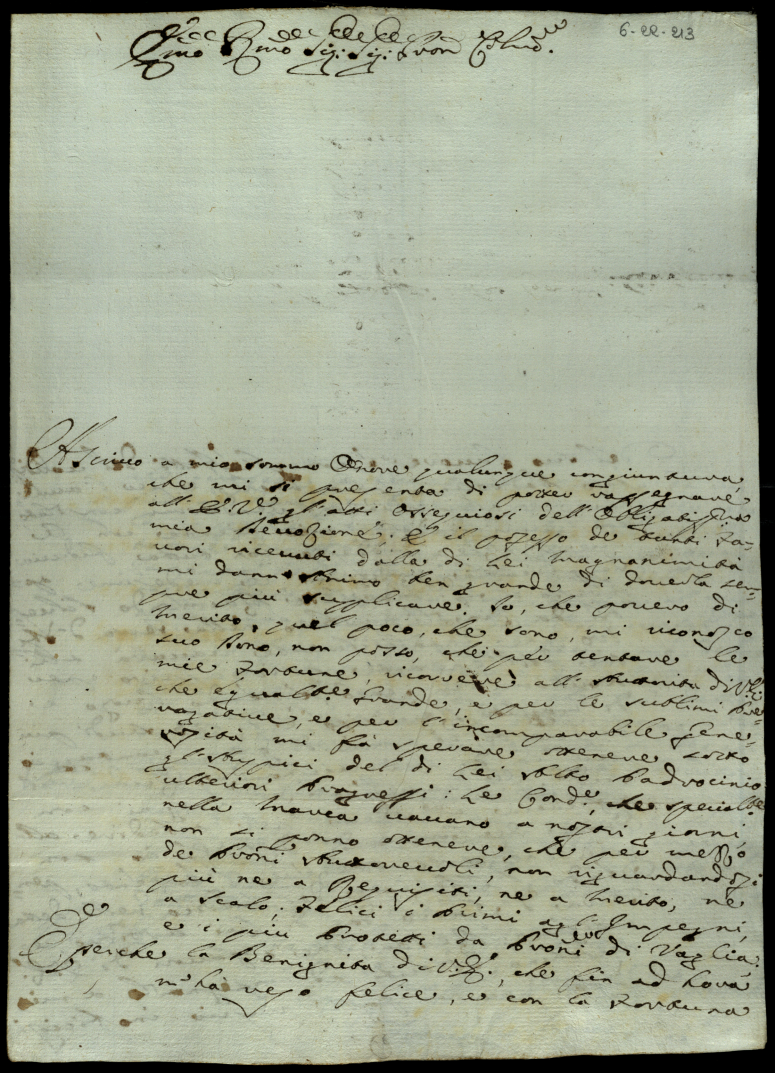 6-22-213
Sig: Sig: Pron Col:mo
Ascrivo a mio sommo Onore qualunque congiuntura,
che mi si presenta di poter rassegnare
all' E. V. gl'atti Ossequiosi dell' Obligatissima
mia Devozione. E il possesso de tanti Fa-
vori ricevuti dalla di Lei Magnanimità
mi danno animo ben grande di doverla sem-
pre più supplicare. Io, che povero di
Merito, quel poco, che sono, mi riconosco
suo Dono, non posso, che per tentare le
mie Fortune, ricorrere all' Autorità di V. E.
che egualmte Grande, e per le sublimi Pre-
rogative, e per l'incomparabile Gene-
rosità mi fà sperare ottenere sotto
gl'Auspici del di Lei Alto Padrocinio
ulteriori Progressi: Le Conde, che specialmte
nella Marca vacano a nostri giorni,
non si ponno ottenere, che per mezzo
de Proñi Auttorevoli, non riguardandosi
più ne a Requisiti, ne a Merito, ne
a Scalo; Felici i Primi agl' Impegni,
e i più Protetti da Proñi di Vaglia;
E perche la Benignità di V. E., che fin ad hora
m' hà reso felice, e con la Fortuna